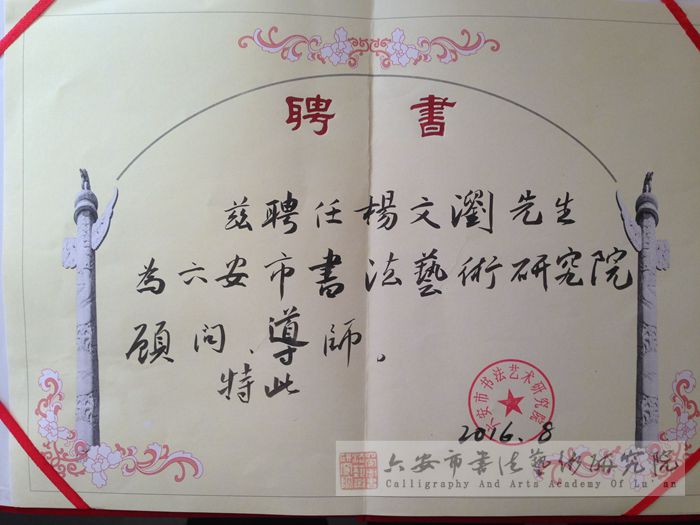 聘書
兹聘任楊文瀏先生
為六安市書法藝術研究院
顧问、導師。
特此
六安市书法艺术研究院
2016.8
六安市書法藝術研究院
Calligraphy And Arts Academy Of Lu'an